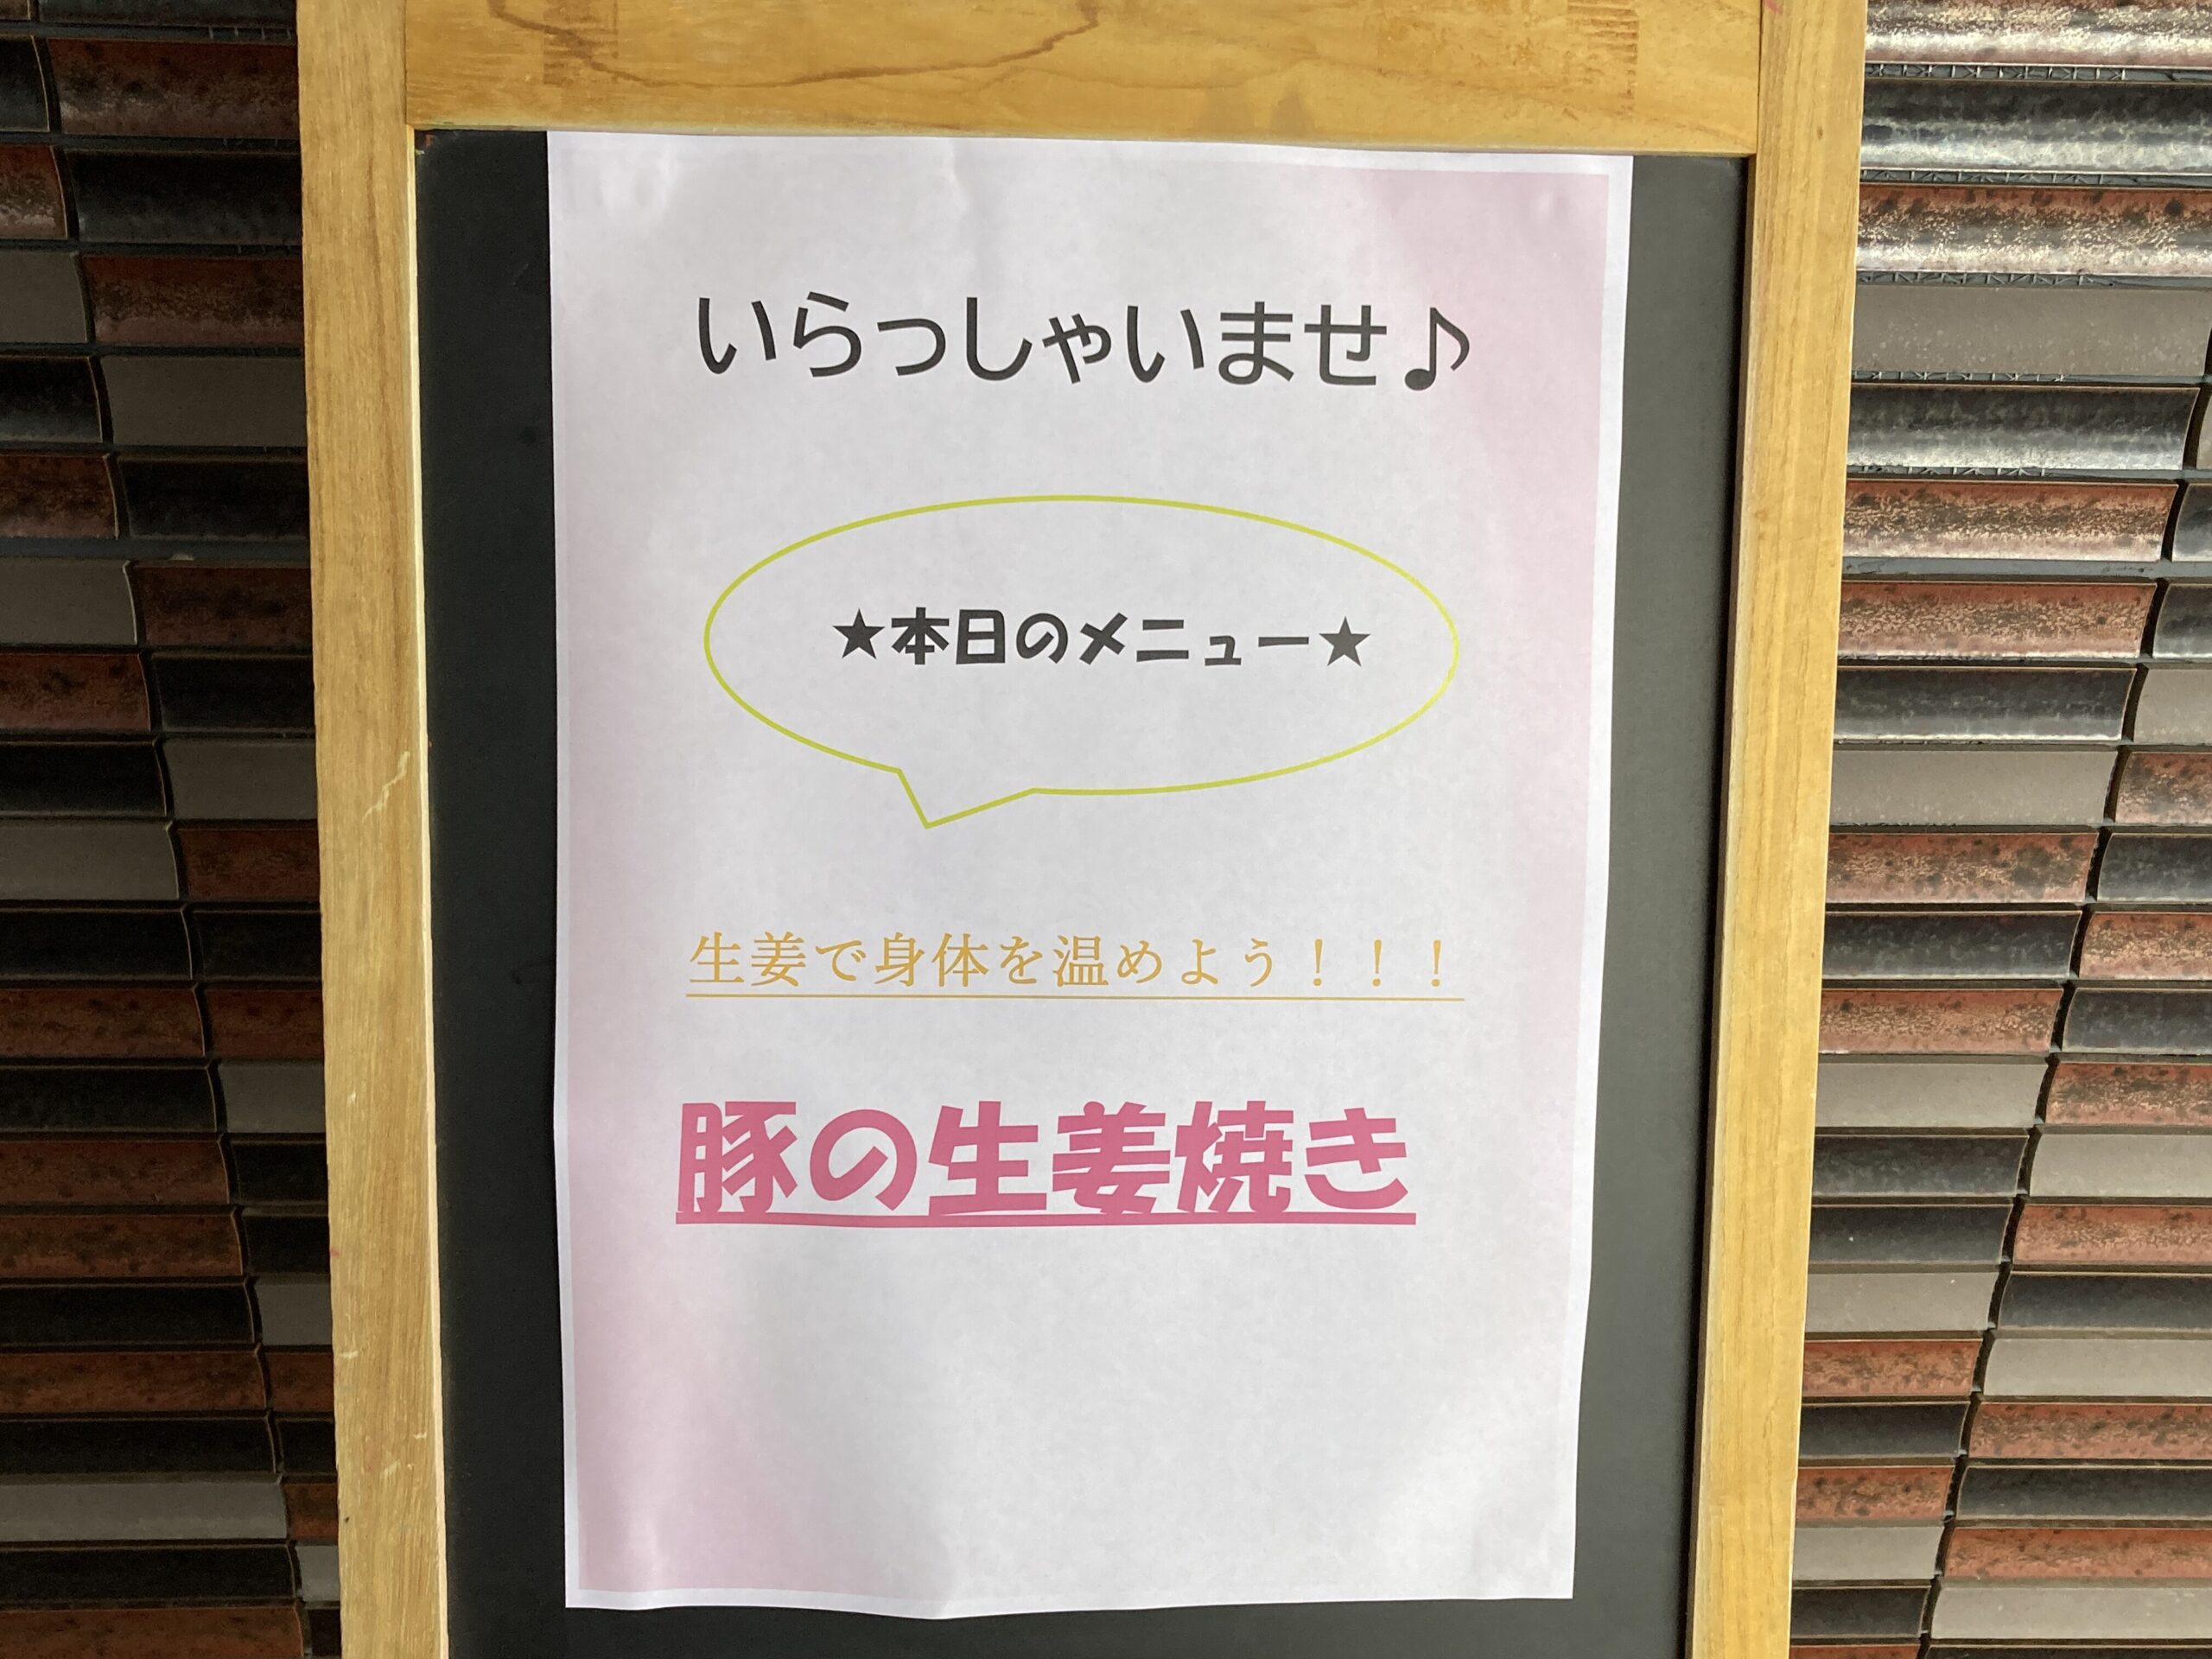 いらっしゃいませ♪
★本日のメニュー★
生姜で身体を温めよう！！！
豚の生姜焼き